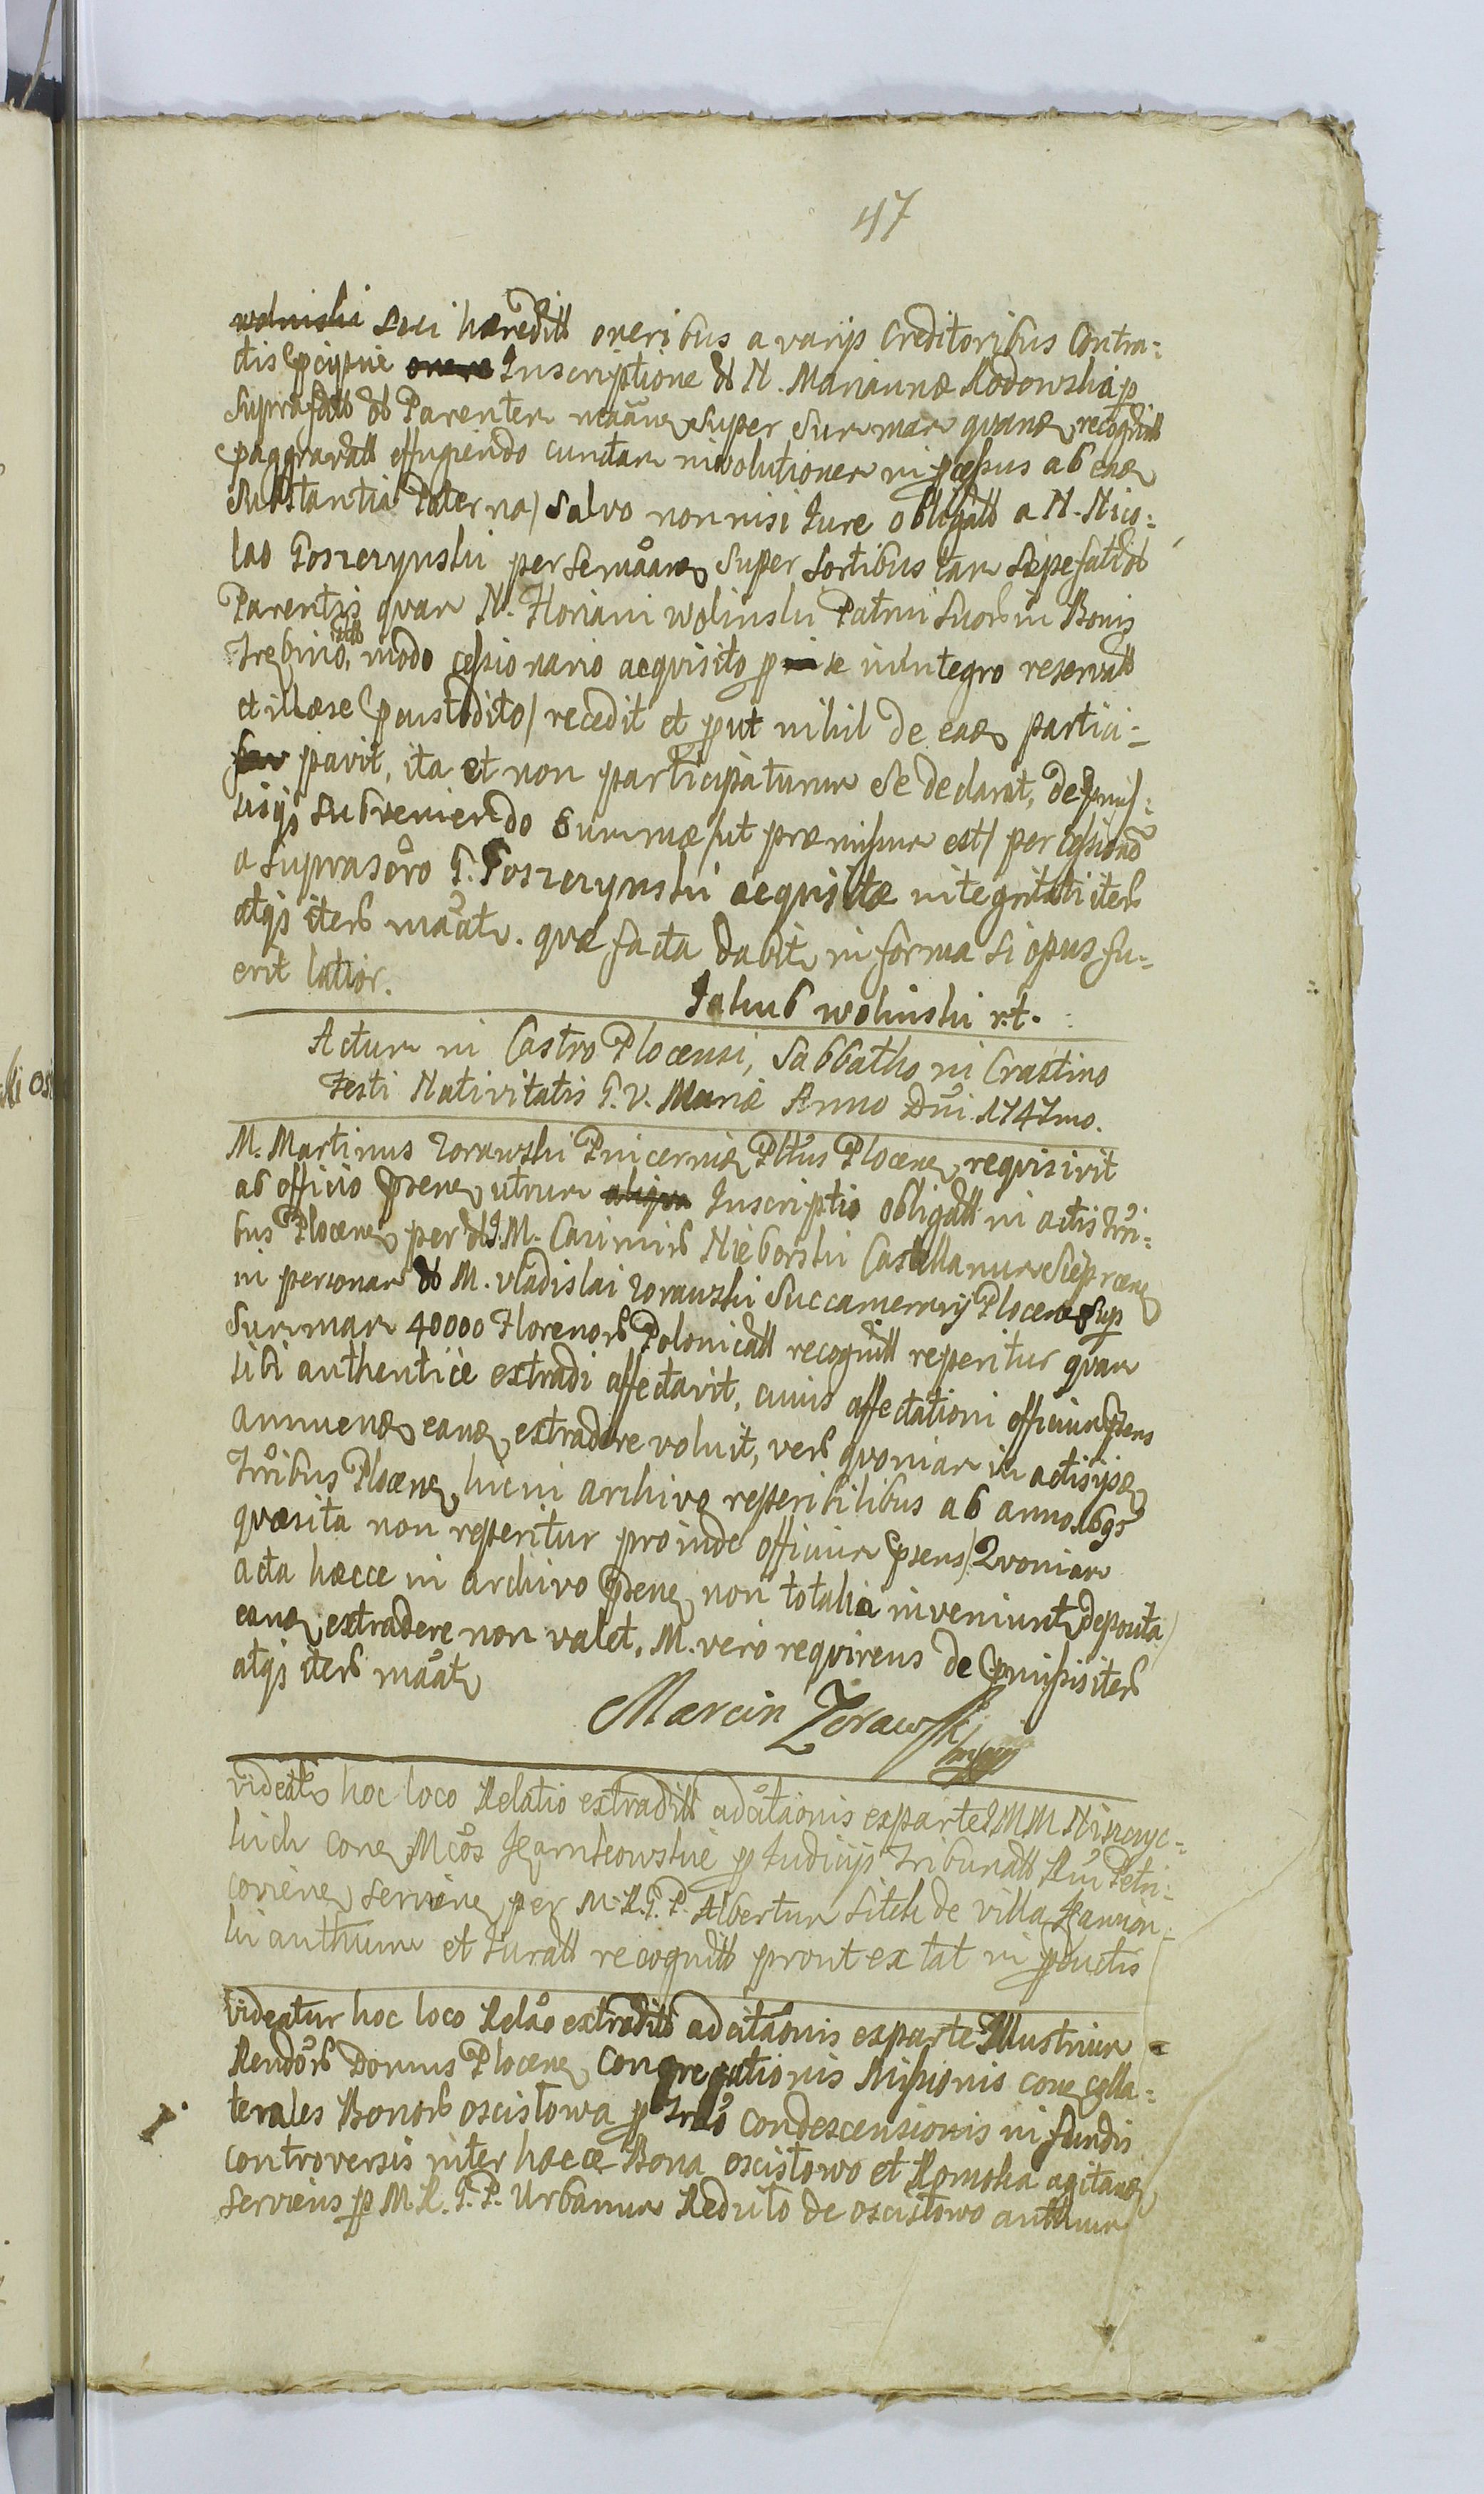 47
wolinski sui hæreditt oneribus a varys Creditoribus Contra=
ctis Inscriptione N. Mariannæ Rodowska p
Suprafatt Parentem super summam quamq recognitt
paggravatt effugiendo cunctam involutionem ab eaq
Substantia Paterna/ Salvo non nisi Jure obligatt a N. Nico=
lao Goszczynski per se super Sortibus tam Sæpefatt
Parentis quam N. Floriani Wolinski Patrui in Bonis
modo cessionario acquisito p se in integro reservatt
et illæse pcustodito/ recedit et put nihil de eaq partici=
pavit, ita et non participaturum se declarat, de
subveniendo Summæ /ut præmissum est/ per
a G. Goszczynski acquisitæ integritati iterb
atqs iterb mãat. quæ facta dabit in forma si opus fu=
erit latior.
Jakub wolinski r.t.
Actum in Castro Plocensi, Sabbatho in Crastino
Festi Nativitatis B.V. Mariæ Anno Dni 1747mo.
M. Martinus Zorawski Pincernia Pltus Plocenq requisivit
ab officio psenq utrum aliqua Inscriptio obligatt in actis Tri=
bus Plocenq per M. Casimirb Nieborski Castellanum Sieprcenq
in personam M. Vladislai Zorawski Succamerary Plocenq sup
Summam 40000 Florenorb Polonicatt recognitt reperitur quam
sibi authentice extradi affectavit, cuius affectationi officium psens
annuenq eanq extradere voluit, verb quoniam in actis ipsq
Tribus Plocenq hic in archivo reperibilibus ab anno 1695
quæsita non reperitur proinde officium psens/ Quoniam
acta hæcce in archivo psenq non totalia inveniunt deposita/
eanq extradere non valet, M. vero requirens de pmissis iterb
atqs iterb mãat
Marcin Zorawski mp
videatr hoc loco Relatio extraditt adcitaonis ex parte MM Niszczyc=
kich conq Mcos Jzamkowskie p Judicys Tribunatt Petri=
coviens serviens per M.R.G.P. Albertum Sitek de villa
authum et Juratt recognitt prout extat in pductis
videatur hoc loco Relao extraditt adcitaonis ex parte Illustrium =
Rendorb Domus Plocenq Congregationis Missionis conq Colla=
terales Bonorb oscistowa p condescensionis in fundis
controversis inter hæcce Bona oscistowo et Romoka agitanq
serviens p M.R.G.P. Urbanum Reduto de oscistowo authum